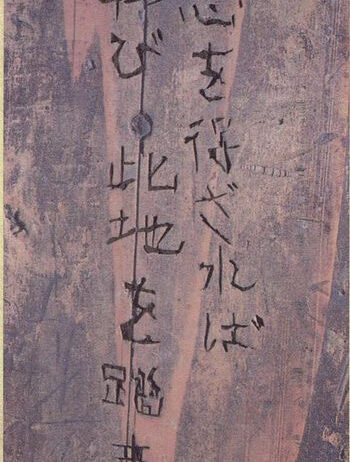 志を得ざれば
再び此地を踏ま